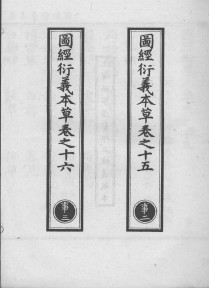 圖經衍義本草卷之十五
事二
圖經衍義本草卷之十六
事三